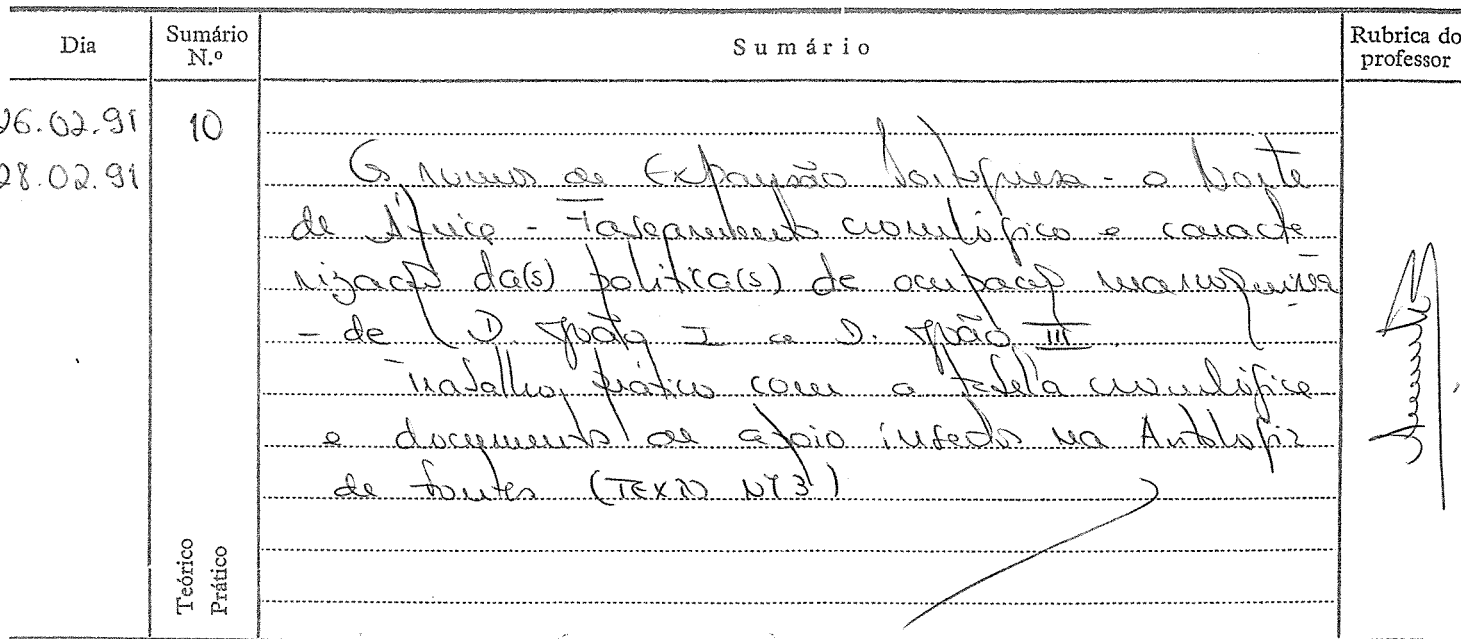 Dia
Sumário N.º
Sumário
Rubrica do professor
26.02.91
28.02.91
10
Os rumos da Expansão Portuguesa - o Norte
de África - Faseamento cronológico e caracte
rização da(s) política(s) de ocupação marroquina
- de D. João I a D. João III.
Trabalho prático com a tabela cronológica
e documentos de apoio insertos na Antologia
de fontes (TEXTO Nº 3)
Teórico
Prático